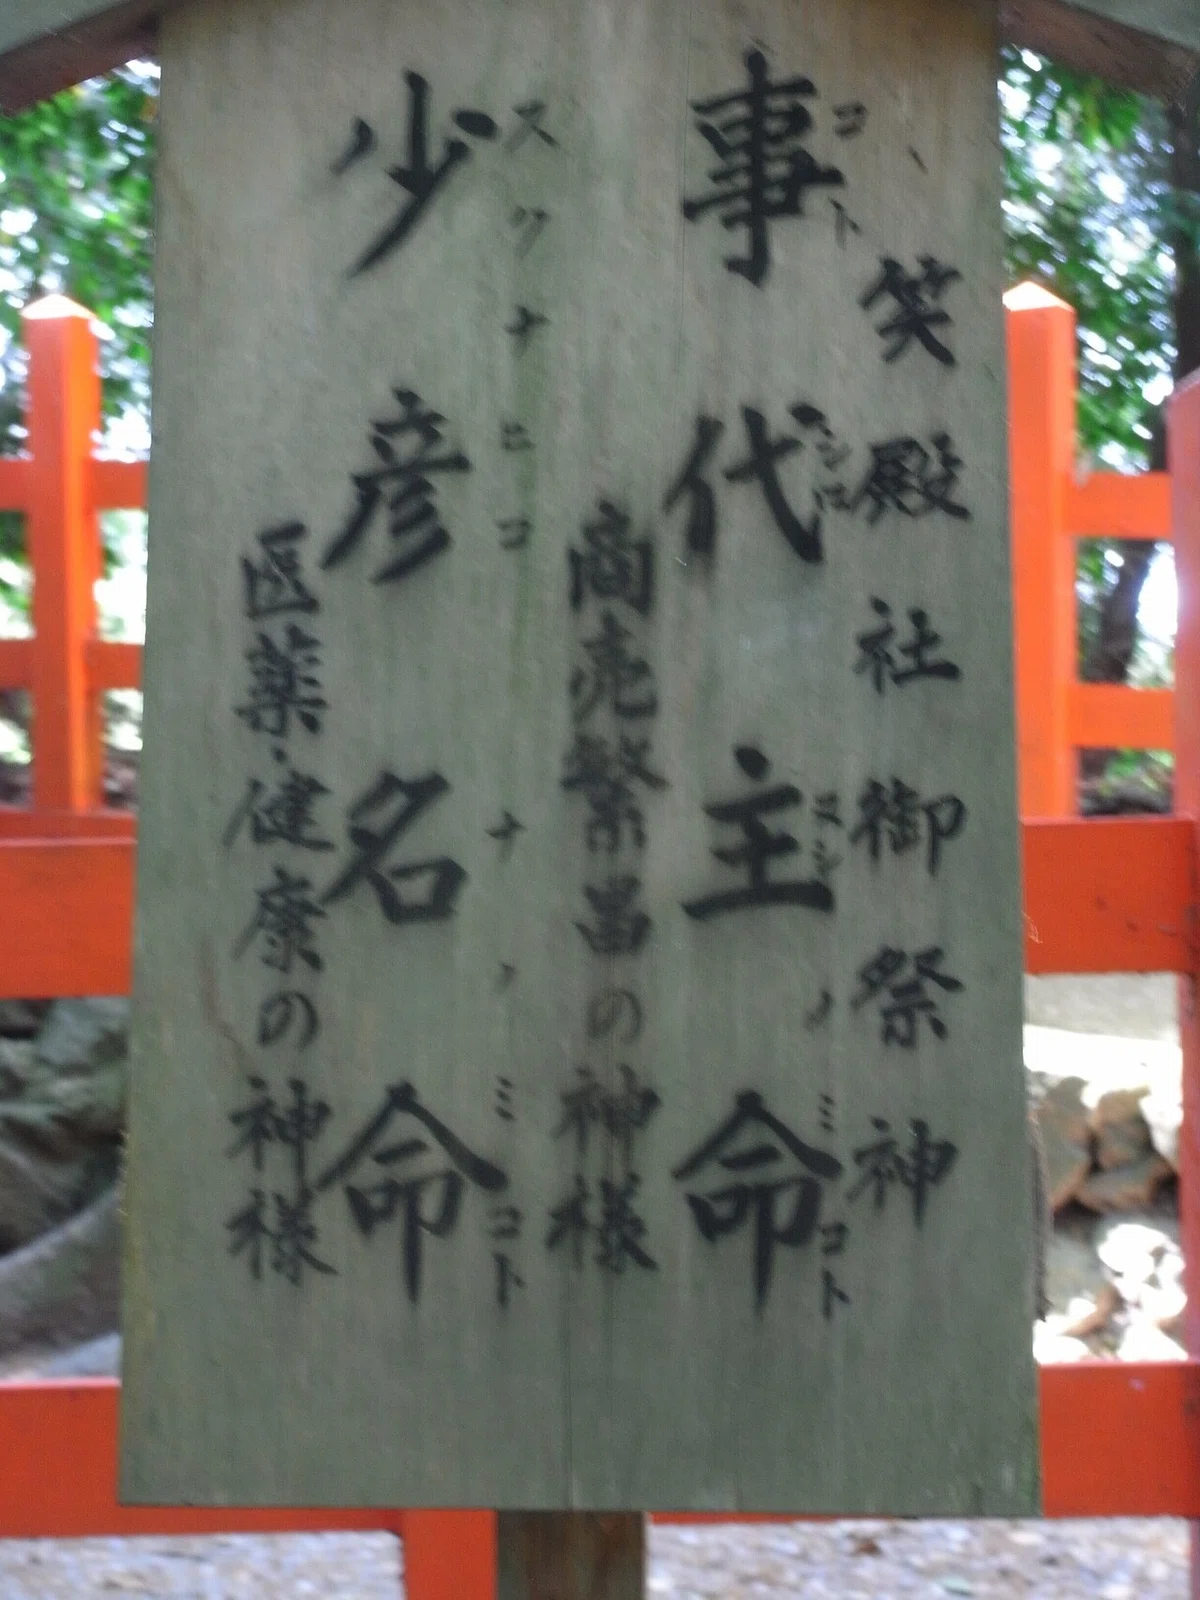 笑殿社御祭神
コトシロヌシノミコト
事代主命
商売繁昌の神様
スクナヒコナノミコト
少彦名命
医薬・健康の神様